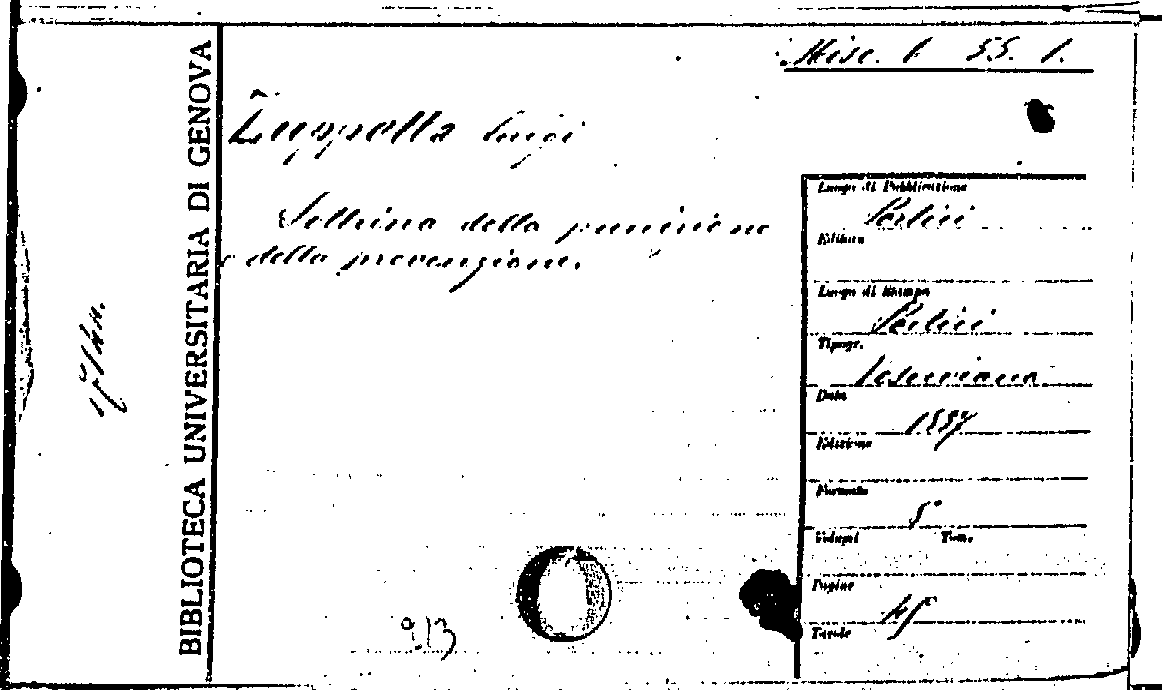 Misc. C 55. 1.
Zuppetta Luigi
Dottrina della punizione
e della prevenzione.
BIBLIOTECA UNIVERSITARIA DI GENOVA
Luogo di Pubblicazione
Portici
Editore
Luogo di Stampa
Portici
Tipogr.
Vesuviana
Data
Edizione
Formato
8°
Volumi Tom.
Pagine
Tavole
913